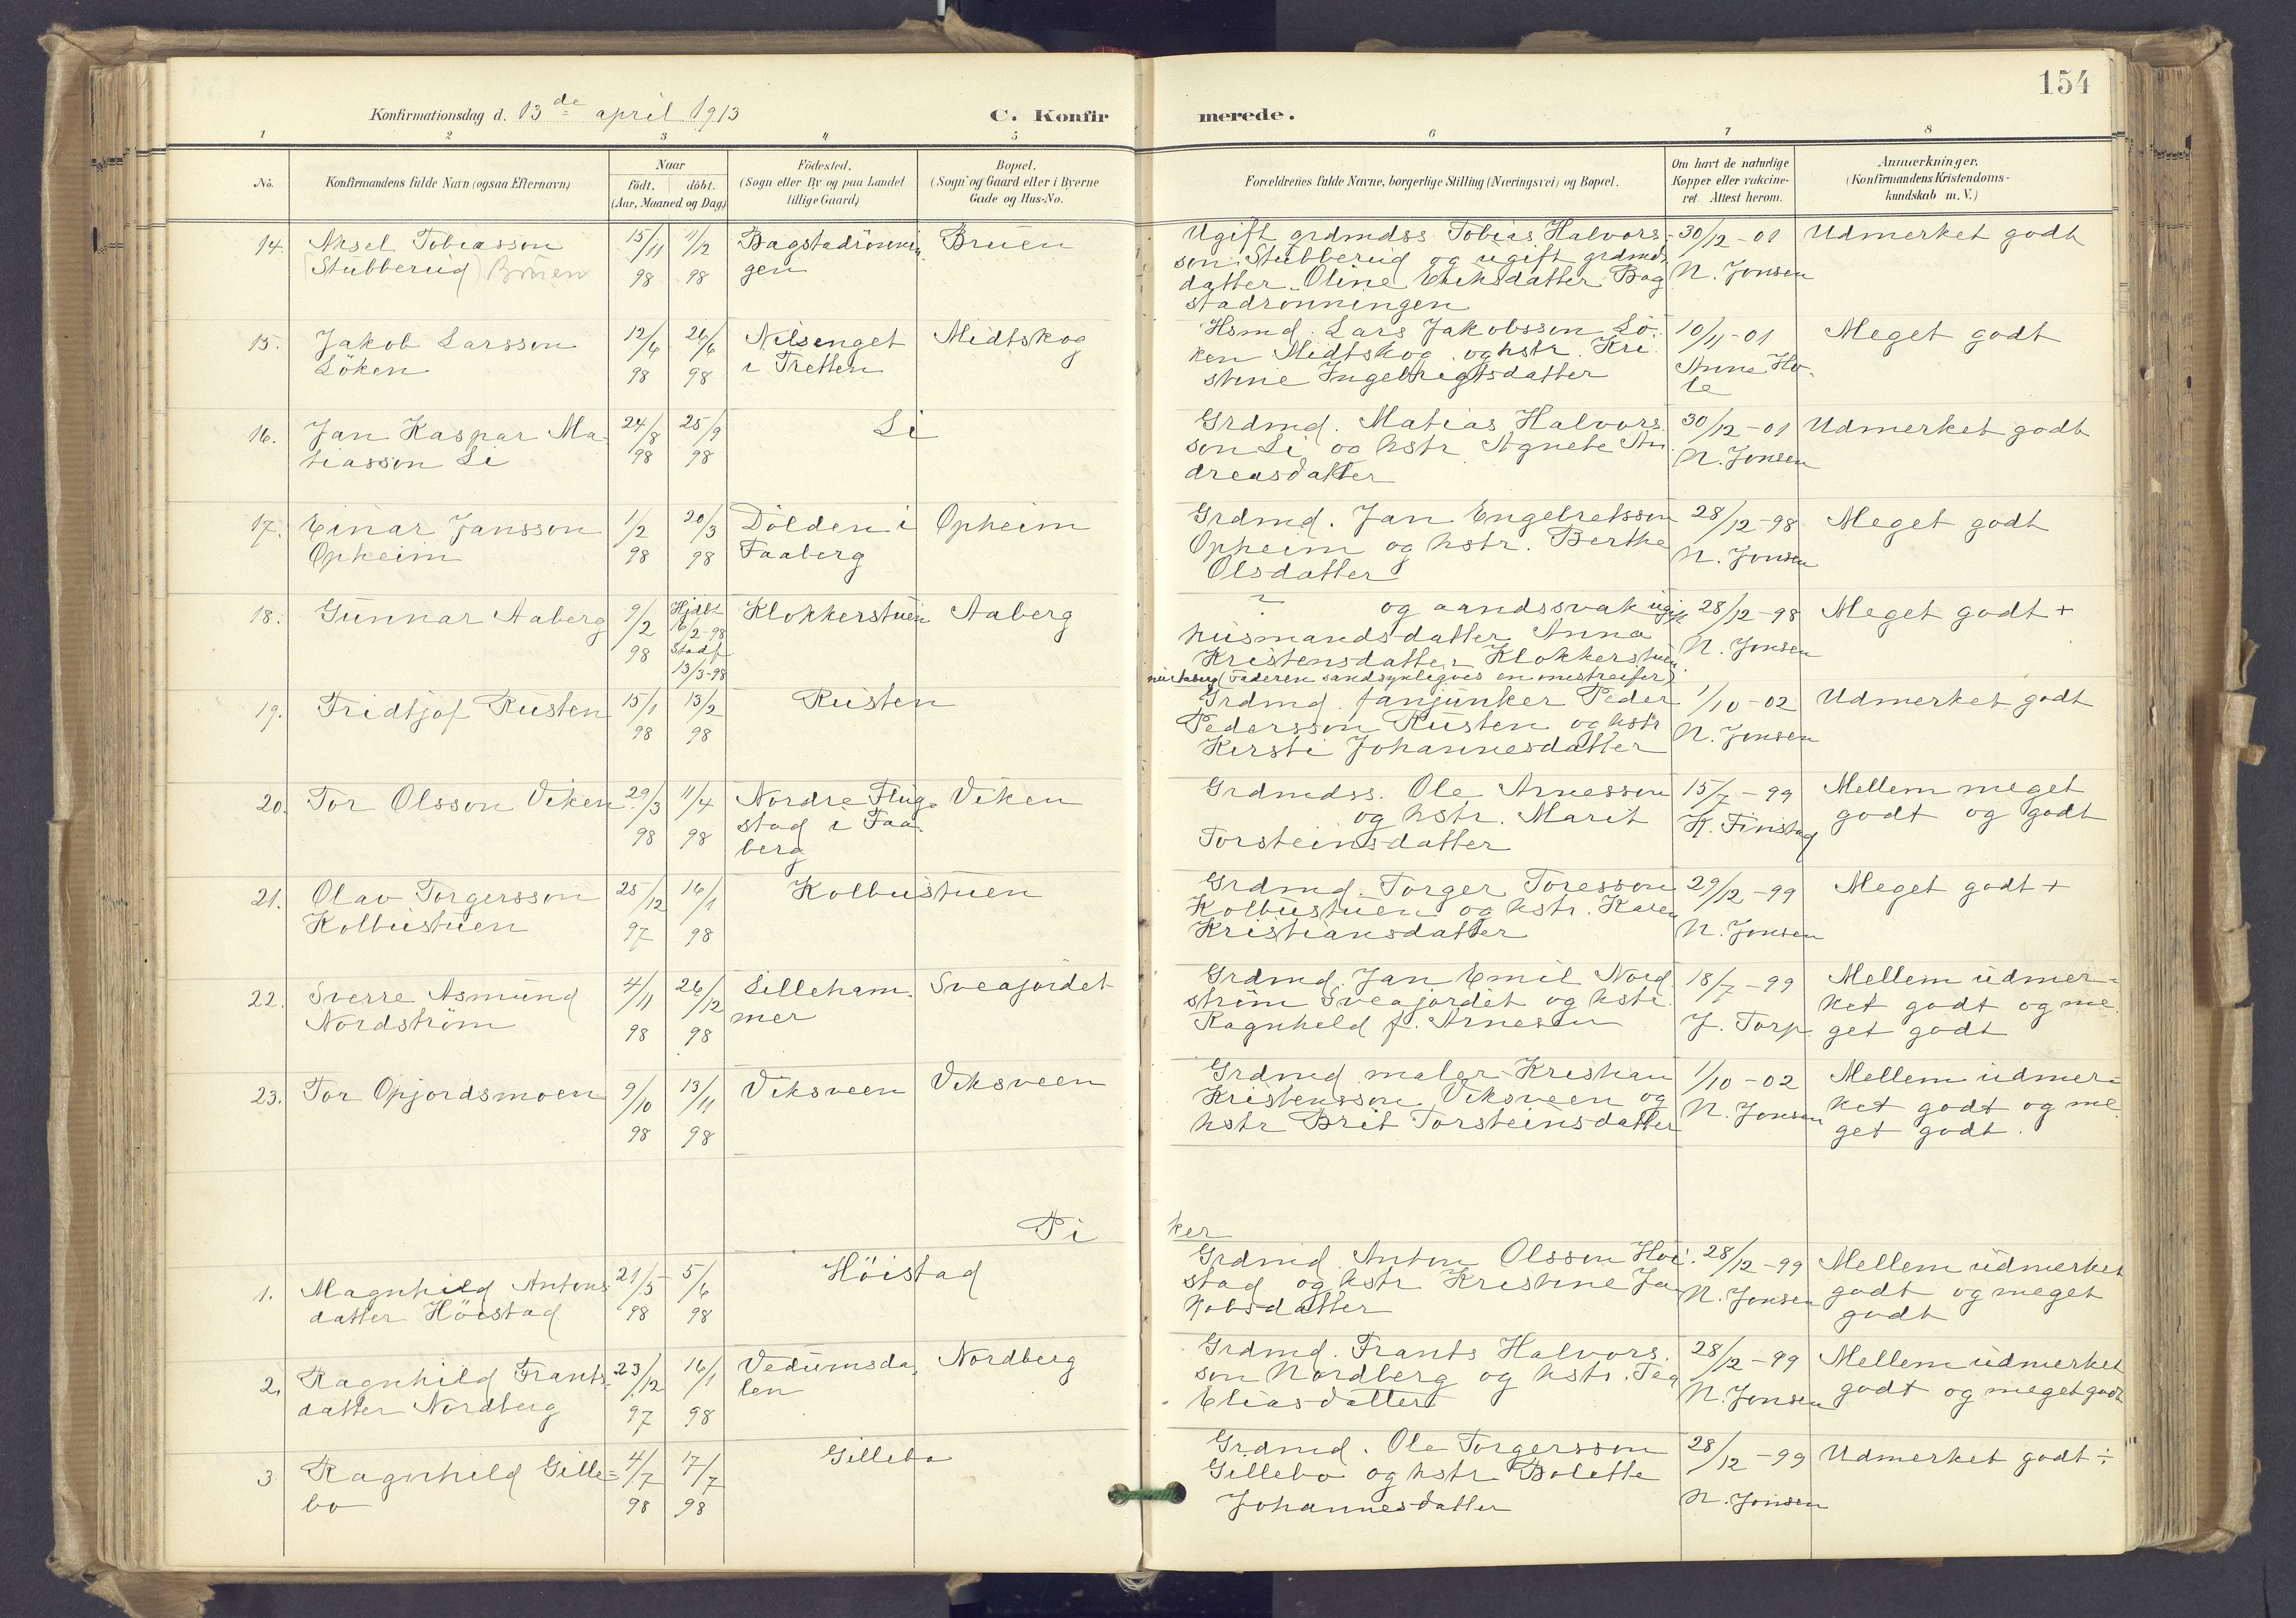 154
Konfirmationsdag d. 13de april 1913
C. Konfirmerede.
1 2 3 4 5 6 7 8
No.
Konfirmandens fulde Navn (ogsaa Efternavn)
Naar
født. døbt.
(Aar, Maaned og Dag)
Födested.
(Sogn eller By og paa Landet
tillige Gaard)
Bopæl.
(Sogn og Gaard eller i Byerne
Gade og Hus-No.
Forældrenes fulde Navne, borgerlige Stilling (Næringsvei) og Bopæl.
Om havt de naturlige
Kopper eller vakcine-
ret. Attest herom.
Anmærkninger.
(Konfirmandens Kristendoms-
kundskab m. V.)
14. Aksel Tobiasson
(Stubberud) Bruen
15/11 98
11/2 98
Bagstadrönnin
gen
Bruen
Ugift grdmdss Tobias Halvors-
son Stubberud og ugift grdmds
datter Oline Eriksdatter Bag
stadrönningen
30/12-01
N. Jonsen
Udmerket godt
15. Jakob Larsson
Löken
12/6 98
26/6 98
Nilsenget
i Tretten
Midtskog
Hsmd. Lars Jakobsson Lö-
ken Midtskog og hstr. Kri
stine Ingebrigtsdatter
10/11-01
Anne Ho-
le
Meget godt
16. Jan Kaspar Ma-
tiasson Li
24/8 98
25/9 98
Li
Grdmd. Matias Halvors
son Li og hstr Agnete An
dreasdatter
30/12-01
N. Jonsen
Udmerket godt
17. Einar Jansson
Opheim
1/2 98
20/3 98
Dölden i
Faaberg
Opheim
Grdmd. Jan Engebretsson
Opheim og hstr. Berthe
Olsdatter
28/12-98
N. Jonsen
Meget godt
18. Gunnar Aaberg
9/2 98
Hjdbt
16/2-98
Stadf
13/3-98
Klokkerstuen
Aaberg
? og aandssvak ugift
husmandsdatter Anna
Kristensdatter Klokkerstuen
(Faderen sandsynligvis en mestreifer)
28/12-98
N. Jonsen
Meget godt +
19. Fridtjof Rusten
15/1 98
13/2 98
Rusten
Grdmd. fanjunker Peder
Pedersson Rusten og hstr
Kersti Johannesdatter
1/10-02
N. Jonsen
Udmerket godt
20. Tor Olsson Viken
29/3 98
11/4 98
Nordre Flug-
stad i Faa-
berg
Viken
Grdmdss. Ole Arnesson
og hstr. Marit
Torsteinsdatter
15/7-99
K. Finstad
Mellem meget
godt og godt
21. Olav Torgersson
Kolbustuen
25/12 97
16/1 98
Kolbustuen
Grdmd. Torger Toresson
Kolbustuen og hstr. Karen
Kristiansdatter
29/12-99
N. Jonsen
Meget godt +
22. Sverre Asmund
Nordström
4/11 98
26/12 98
Lilleham-
mer
Sveajordet
Grdmd. Jan Emil Nord
ström Sveajordet og hstr.
Ragnhild f. Arnesen
18/7-99
J. Torp
Mellem udmer-
ket godt og me
get godt
23. Tor Opjordsmoen
9/10 98
13/11 98
Viksveen
Viksveen
Grdmd maler Kristian
Kristensson Viksveen og
hstr Brit Torsteinsdatter
1/10-02
N. Jonsen
Mellem udmer-
ket godt og me
get godt.
Piker
1. Magnhild Antons
datter Höistad
21/5 98
5/6 98
Höistad
Grdmd. Anton Olsson Höi-
stad og hstr Kristine Ja
kobsdatter
28/12-99
N. Jonsen
Mellem udmerket
godt og meget
godt
2. Ragnhild Frants-
datter Nordberg
23/12 97
16/1 98
Vedumsda-
len
Nordberg
Grdmd. Frants Halvors-
son Nordberg og hstr. Tea
Eliasdatter
28/12-99
N. Jonsen
Mellem udmerket
godt og meget godt
3. Ragnhild Gille-
bo
4/7 98
17/7 98
Gillebo
Grdmd. Ole Torgersson
Gillebo og hstr Bolette
Johannesdatter
28/12-99
N. Jonsen
Udmerket godt ÷